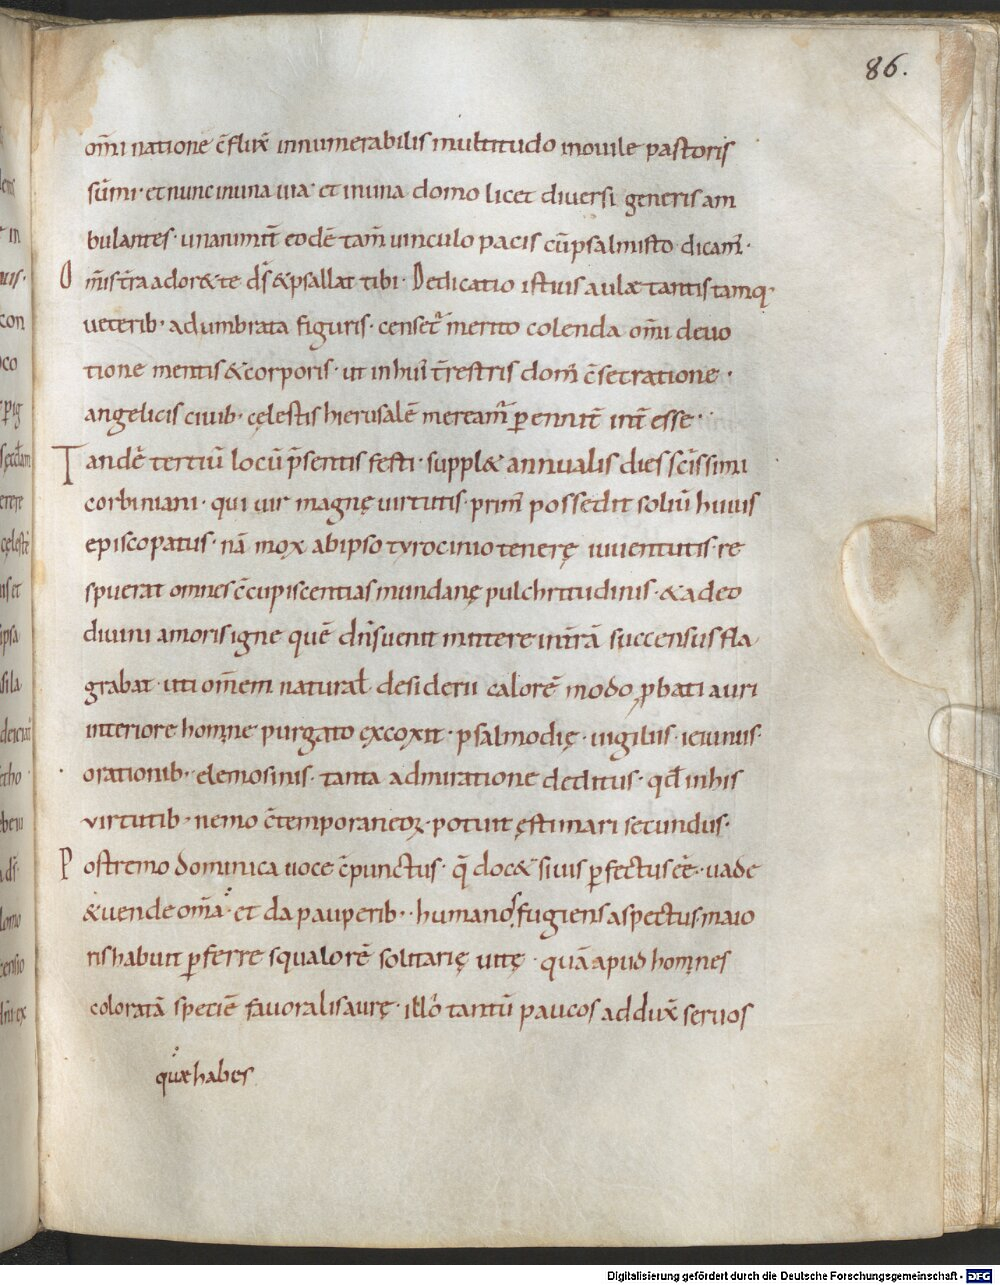 86.
om̄i natione c̄flux̄ innumerabilis multitudo inouile pastoris
sūmi· et nunc inuna uia· et inuna domo licet diuersi generis am
bulantes· unanimit̄ eodē tam̄ uinculo pacis cū psalmisto dicam̄·
Om̄is t̄ra ador&te d̄s &psallat tibi· Dedicatio istius aulæ tantis tamq;
ueterib· adumbrata figuris· censet᷑ merito colenda om̄i deuo
tione mentis &corporis· ut in hui᷒ t̄rrestris dom᷒ c̄secratione·
angelicis ciuib· cęlestis hierusalē meream᷑ perennit̄ int̄ esse·
Tandē tertiū locū p̄sentis festi· suppl& annualis dies sc̄issimi
corbiniani· qui uir magnę uirtutis· prim᷒ possedit soliū huius
episcopatus· nā mox abipso tyrocinio tenerę iuuentutis· re
spuerat omnes c̄cupiscentias mundanę pulchritudinis· &adeo
diuini amoris igne quē dn̄s uenit mittere int̄rā succensus fla
grabat· uti om̄em natural̄ desiderii calorē modo probati auri
interiore homine purgato excoxit· psalmodię· uigiliis· ieiuniis·
orationib· elemosinis· tanta admiratione deditus· qd̄ inhis
uirtutib· nemo c̄temporaneoꝝ potuit ęstimari secundus·
Postremo dominica uoce c̄punctus· q̄ doc& siuis perfectus eē· uade
&uende om̄a· et da pauperib·· humanos fugiens aspectus maio
ris habuit perferre squalorē solitarię uitę· quā apud homines
coloratā speciē fauoralis aurę· illo᷒ tantū paucos addux̄ seruos
quæ habes
Digitalisierung gefördert durch die Deutsche Forschungsgemeinschaft - DFG